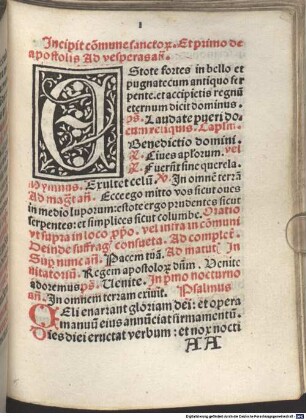 1
Incipit cõmune sanctoꝝ. Et primo de
apostolis Ad vesperas añ.
EStote fortes in bello et
pugnate cum antiquo ser
pente: et accipietis regnũ
eternum dicit dominus.
ps. Laudate pueri do.
cum reliquis. Capłm.
Benedictio domini.
℟. Ciues apłorum. vel
℟. Fuerũt sine querela.
Hymnus. Exultet celũ ℣. In omnẽ terrã
Ad magt̃ añ. Ecce ego mitto vos sicut oues
in medio luporum: estote ergo prudentes sicut
serpentes: et simplices sicut columbe. Oratio
vt supra in loco ꝓpo. vel infra in cõmuni
Deinde suffrag̃ consueta. Ad complet̃.
Sup nunc añ. Pacem tuã. Ad matut̃. In
uitatoriũ. Regem apostoloꝝ dñm. Venite
adoremus ps. Uenite. In pmo nocturno
añ. In omnem terram exiuit. Psalmus
CEli enarrant gloriam dei: et opera
manuũ eius annũciat firmamentũ.
Dies diei eructat verbum: et nox nocti
AA